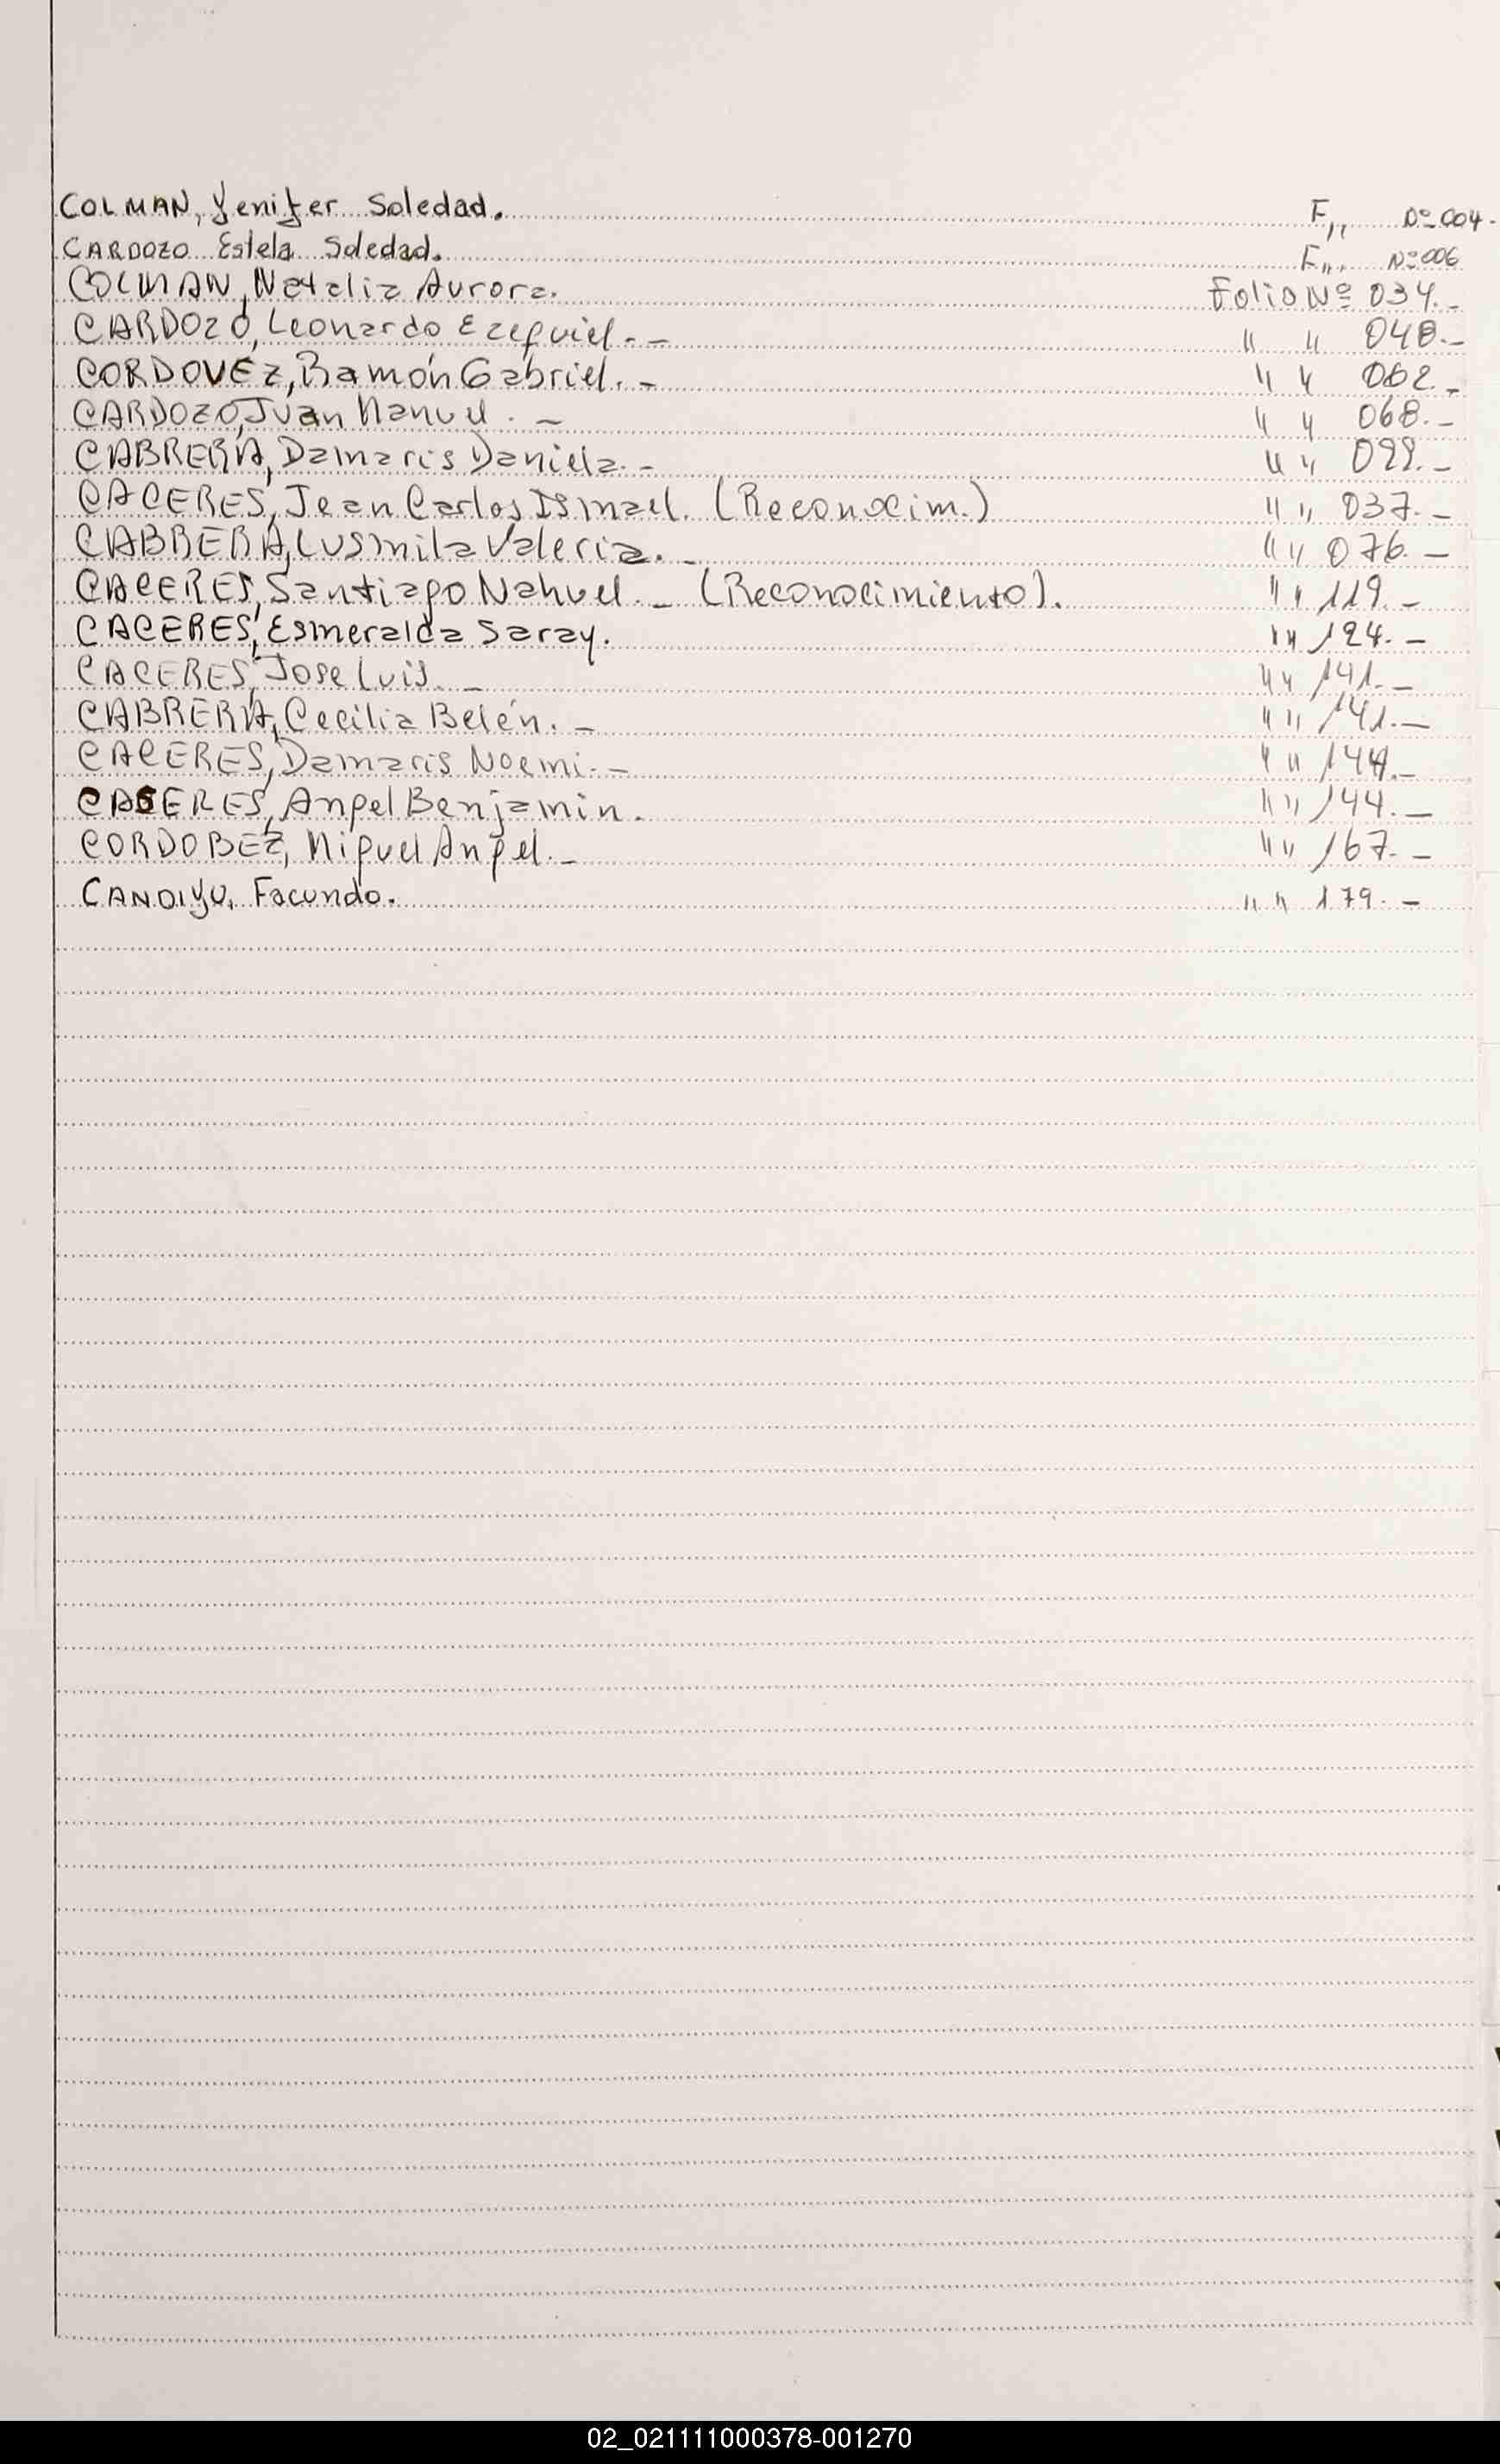 COLMAN, Yenifer Soledad. F,, Nº 004.
CARDOZO Estela Soledad. F,,, Nº 006
COLMAN, Natalia Aurora. Folio Nº 034.-
CARDOZO, Leonardo Ezequiel. - " " 048.-
CORDOVEZ, Ramón Gabriel. - " " 062.-
CARDOZO, Juan Manuel. - " " 068.-
CABRERA, Damaris Daniela. - " "
CACERES, Jean Carlos Ismael. (Reconocim.) " " 037.-
CABRERA, Lusmila Valeria. - " " 076.-
CACERES, Santiago Nahuel. - (Reconocimiento). " " 119.-
CACERES, Esmeralda Saray. " " 124.-
CACERES, Jose Luis. - " " 141.-
CABRERA, Cecilia Belén. - " " 141.-
CACERES, Damaris Noemi. - " " 144.-
CACERES, Angel Benjamin. " " 144.-
CORDOBEZ, Miguel Angel. - " " 167.-
CANDIYU, Facundo. " " 179.-
02_021111000378-001270